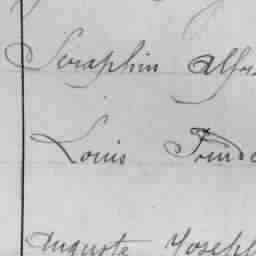 Seraphin Alfr
Louis
Auguste Joseph